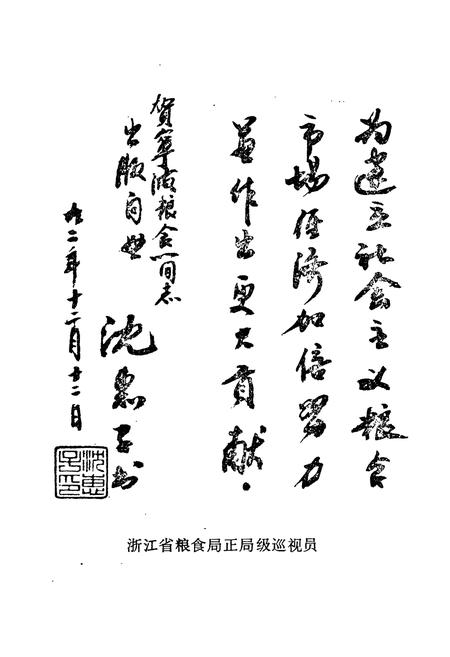 为建立社会主义粮食
市场经济加倍努力
并作出更大贡献.
贺宁海粮食志
出版问世
九二年十二月十二日
沈惠子书
沈惠子印
浙江省粮食局正局级巡视员